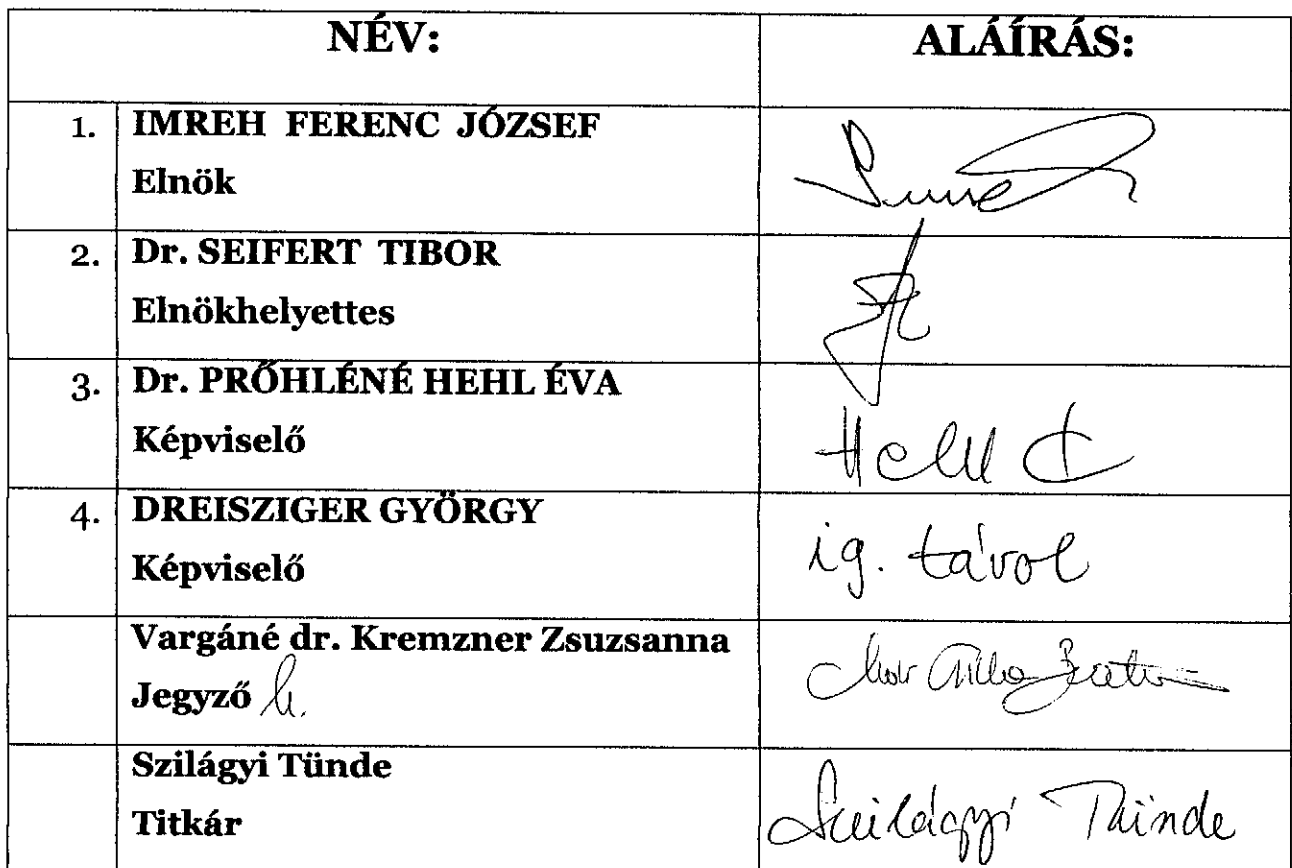 NÉV: ALÁÍRÁS:
1. IMREH FERENC JÓZSEF
Elnök
2. Dr. SEIFERT TIBOR
Elnökhelyettes
3. Dr. PRŐHLÉNÉ HEHL ÉVA
Képviselő Hehl É
4. DREISZIGER GYÖRGY
Képviselő ig. távol
Vargáné dr. Kremzner Zsuzsanna
Jegyző h.
Szilágyi Tünde
Titkár Szilágyi Tünde